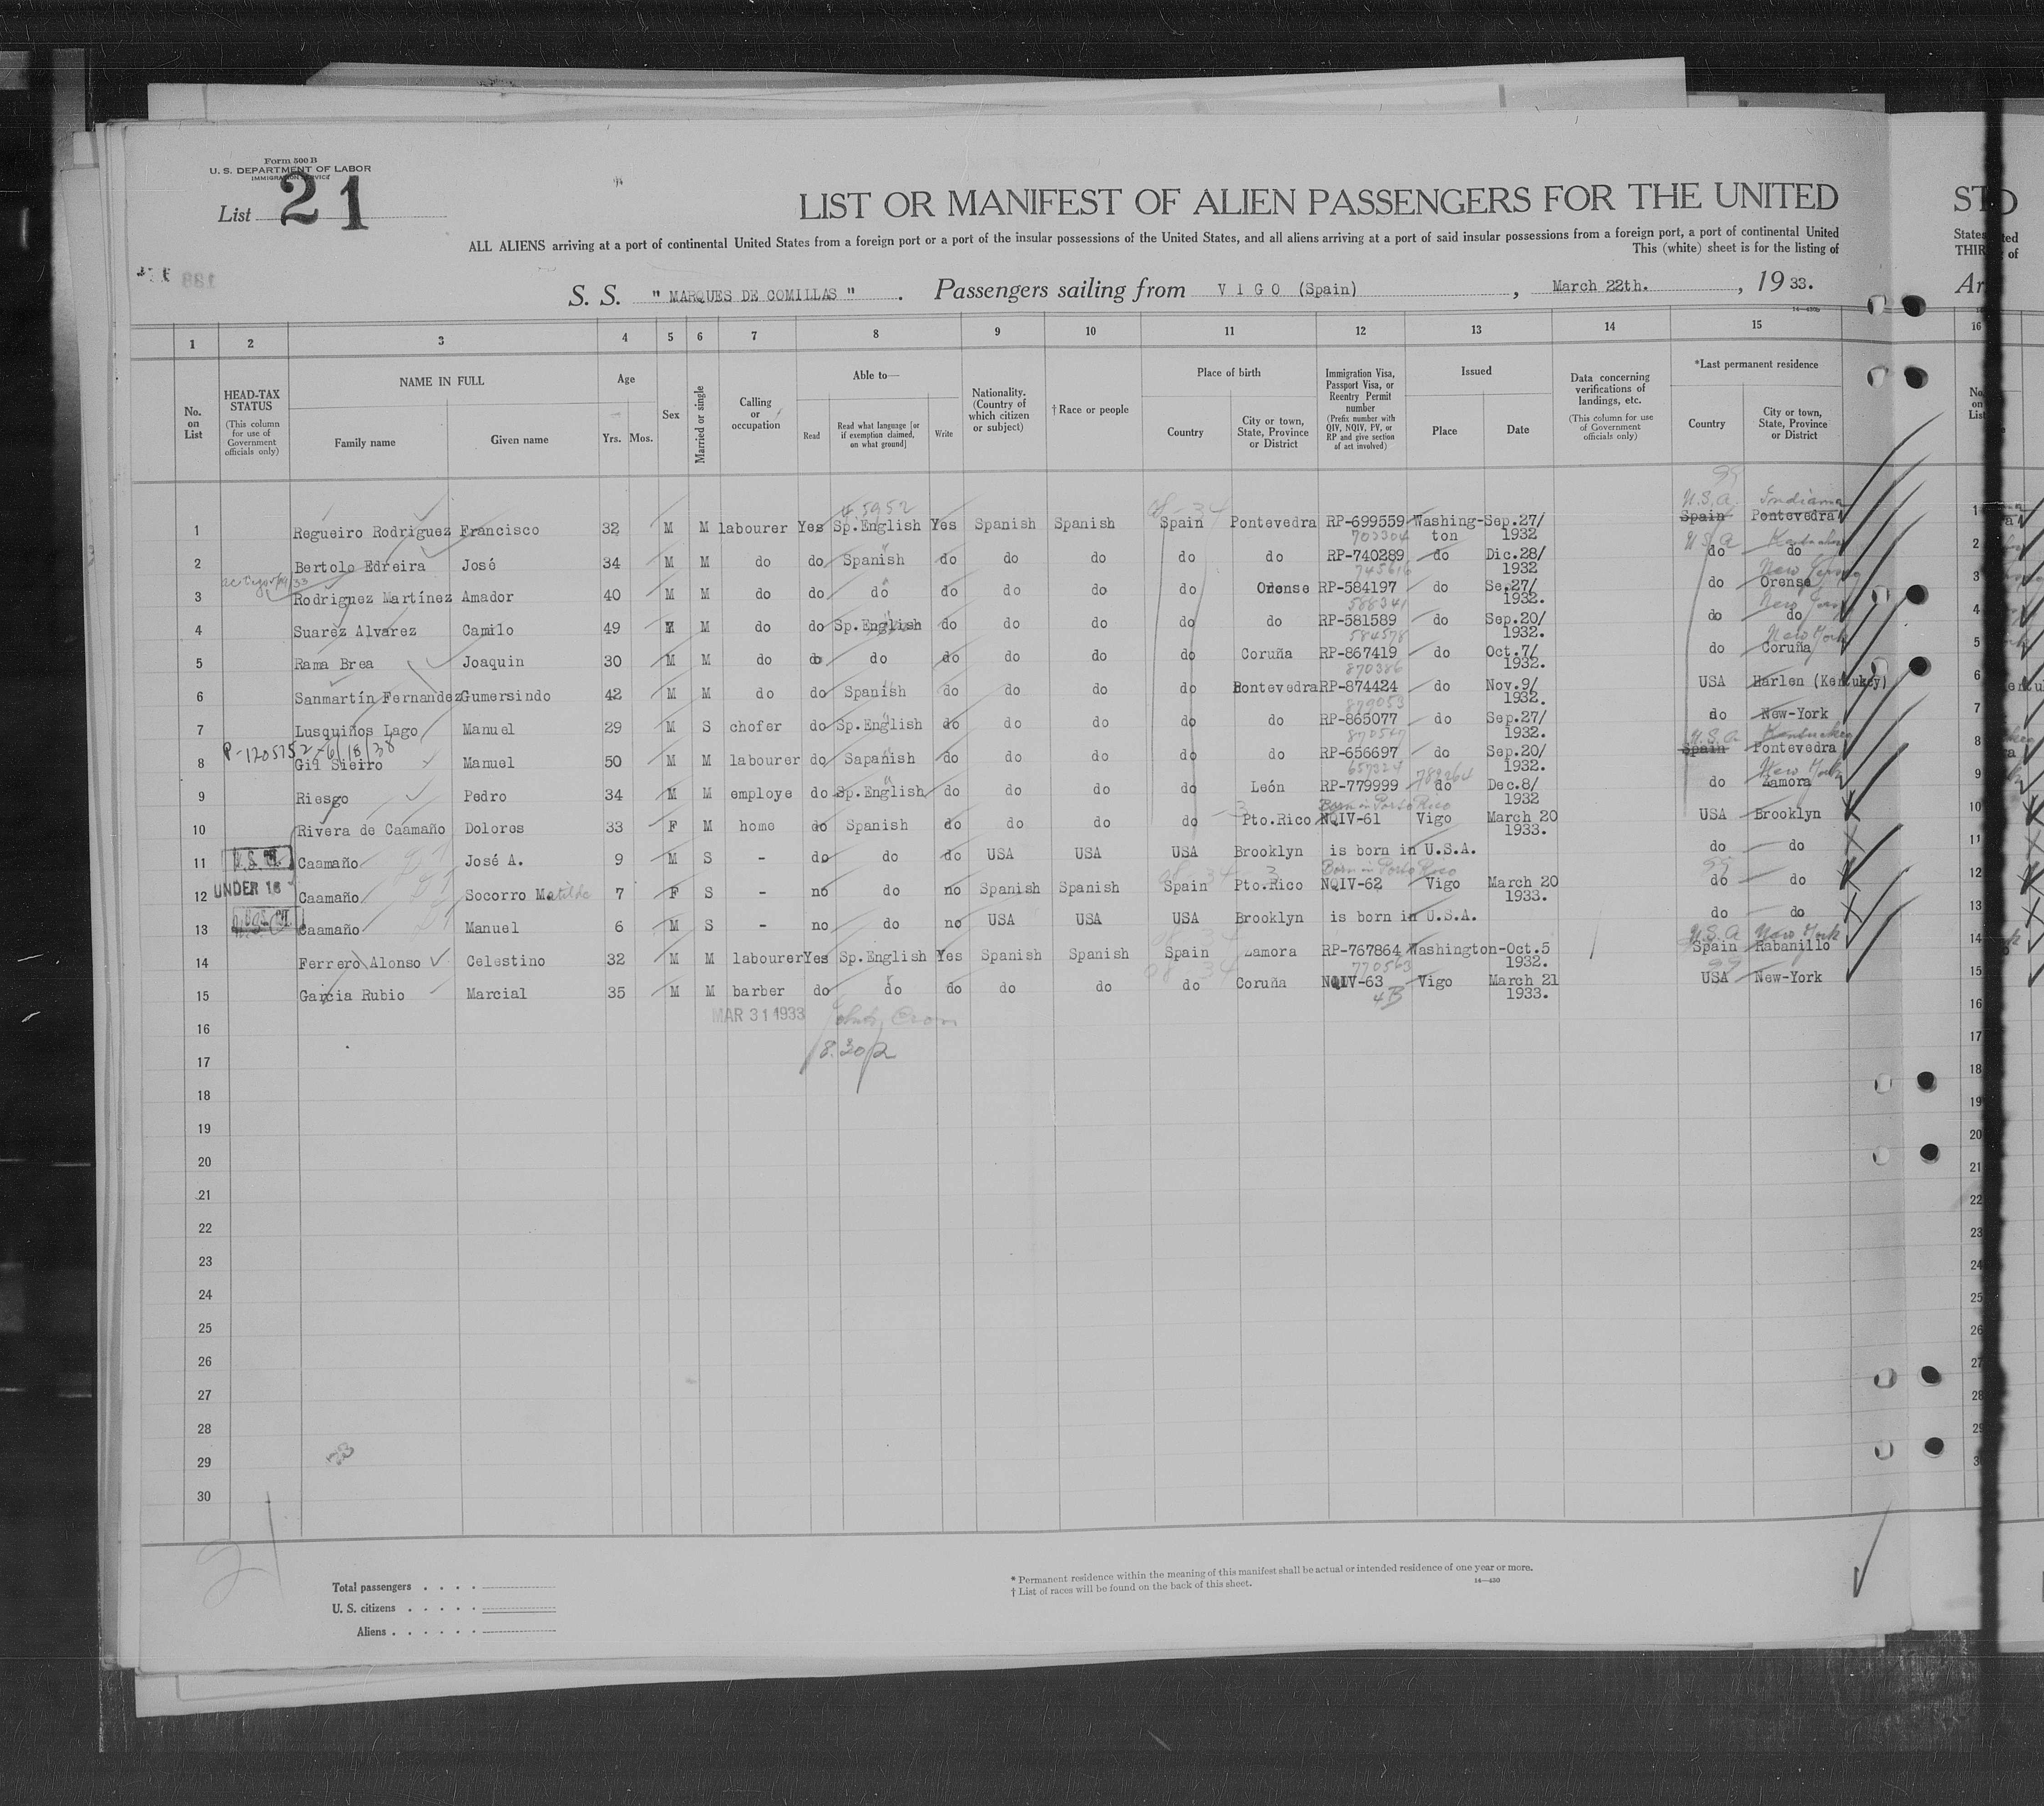 Form 500 B
U. S. DEPARTMENT OF LABOR
IMMIGRATION SERVICE
List 21
LIST OR MANIFEST OF ALIEN PASSENGERS FOR THE UNITED
ALL ALIENS arriving at a port of continental United States from a foreign port or a port of the insular possessions of the United States, and all aliens arriving at a port of said insular possessions from a foreign port, a port of continental United
This (white) sheet is for the listing of
S. S. " MARQUES DE COMILLAS " . Passengers sailing from V I G O (Spain) , March 22th. , 19 33.
14—430b
1 2 3 4 5 6 7 8 9 10 11 12 13 14 15 16
No. on List
HEAD-TAX STATUS (This column for use of Government officials only)
NAME IN FULL Family name Given name
Age Yrs. Mos.
Sex
Married or single
Calling or occupation
Able to— Read Read what language [or if exemption claimed, on what ground] Write
Nationality. (Country of which citizen or subject)
†Race or people
Place of birth Country City or town, State, Province or District
Immigration Visa, Passport Visa, or Reentry Permit number (Prefix number with QIV, NQIV, PV, or RP and give section of act involved)
Issued Place Date
Data concerning verifications of landings, etc. (This column for use of Government officials only)
*Last permanent residence Country City or town, State, Province or District
4.5952 U.S.A. Indiana
1 Regueiro Rodriguez Francisco 32 M M labourer Yes Sp.English Yes Spanish Spanish Spain Pontevedra RP-699559 Washington Sep.27/1932 Spain Pontevedra
703304 U.S.A
2 Bertolo Edreira José 34 M M do do Spanish do do do do do RP-740289 do Dic.28/1932 do do
745616 New Jersey
3 Rodriguez Martínez Amador 40 M M do do do do do do do Orense RP-584197 do Sep.27/1932. do Orense
588341
4 Suarez Alvarez Camilo 49 M M do do Sp.English do do do do do RP-581589 do Sep.20/1932. do do
584578 New York
5 Rama Brea Joaquin 30 M M do do do do do do do Coruña RP-867419 do Oct.7/1932. do Coruña
870386
6 Sanmartín Fernandez Gumersindo 42 M M do do Spanish do do do do Pontevedra RP-874424 do Nov.9/1932. USA Harlen (Kentukey)
879053
7 Lusquiños Lago Manuel 29 M S chofer do Sp.English do do do do do RP-865077 do Sep.27/1932. do New-York
P-1205752-6/18/38 U.S.A Kentuckey
8 Gil Sieiro Manuel 50 M M labourer do Sapanish do do do do do RP-656697 do Sep.20/1932. Spain Pontevedra
657324 789264 New York
9 Riesgo Pedro 34 M M employe do Sp.English do do do do León RP-779999 do Dec.8/1932 do Zamora
Born in Porto Rico
10 Rivera de Caamaño Dolores 33 F M home do Spanish do do do do Pto.Rico NQIV-61 Vigo March 20 1933. USA Brooklyn
11 Caamaño José A. 9 M S - do do do USA USA USA Brooklyn is born in U.S.A. do do
UNDER 16 Born in Porto Rico
12 Caamaño Socorro Matilde 7 F S - no do no Spanish Spanish Spain Pto.Rico NQIV-62 Vigo March 20 1933. do do
13 Caamaño Manuel 6 M S - no do no USA USA USA Brooklyn is born in U.S.A. do do
U.S.A New York
14 Ferrero Alonso Celestino 32 M M labourer Yes Sp.English Yes Spanish Spanish Spain Zamora RP-767864 Washington-Oct.5 1932. Spain Rabanillo
770563
15 Garcia Rubio Marcial 35 M M barber do do do do do do Coruña NQIV-63 Vigo March 21 1933. USA New-York
4B
16 MAR 31 1933
17 8.30p
18
19
20
21
22
23
24
25
26
27
28
29
30
Total passengers
U. S. citizens
Aliens
* Permanent residence within the meaning of this manifest shall be actual or intended residence of one year or more.
† List of races will be found on the back of this sheet.
14—430